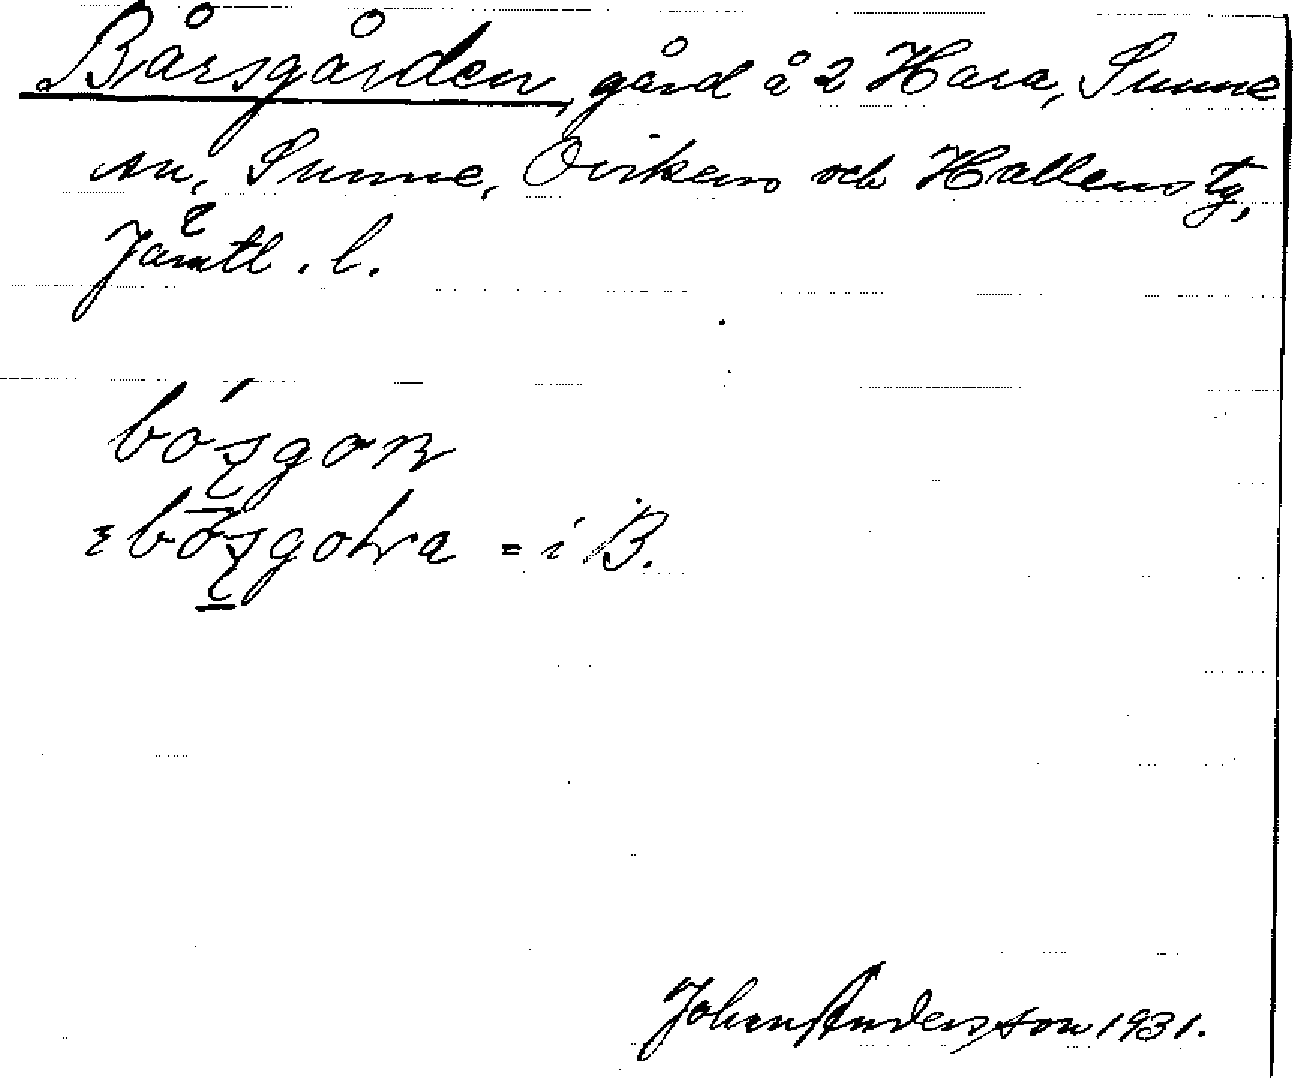 Bårsgården, gård å 2 Hara, Sunne
sn, Sunne, Ovikens och Hallens tg,
Jämtl. l.
= i B.
Johan Andersson 1931.